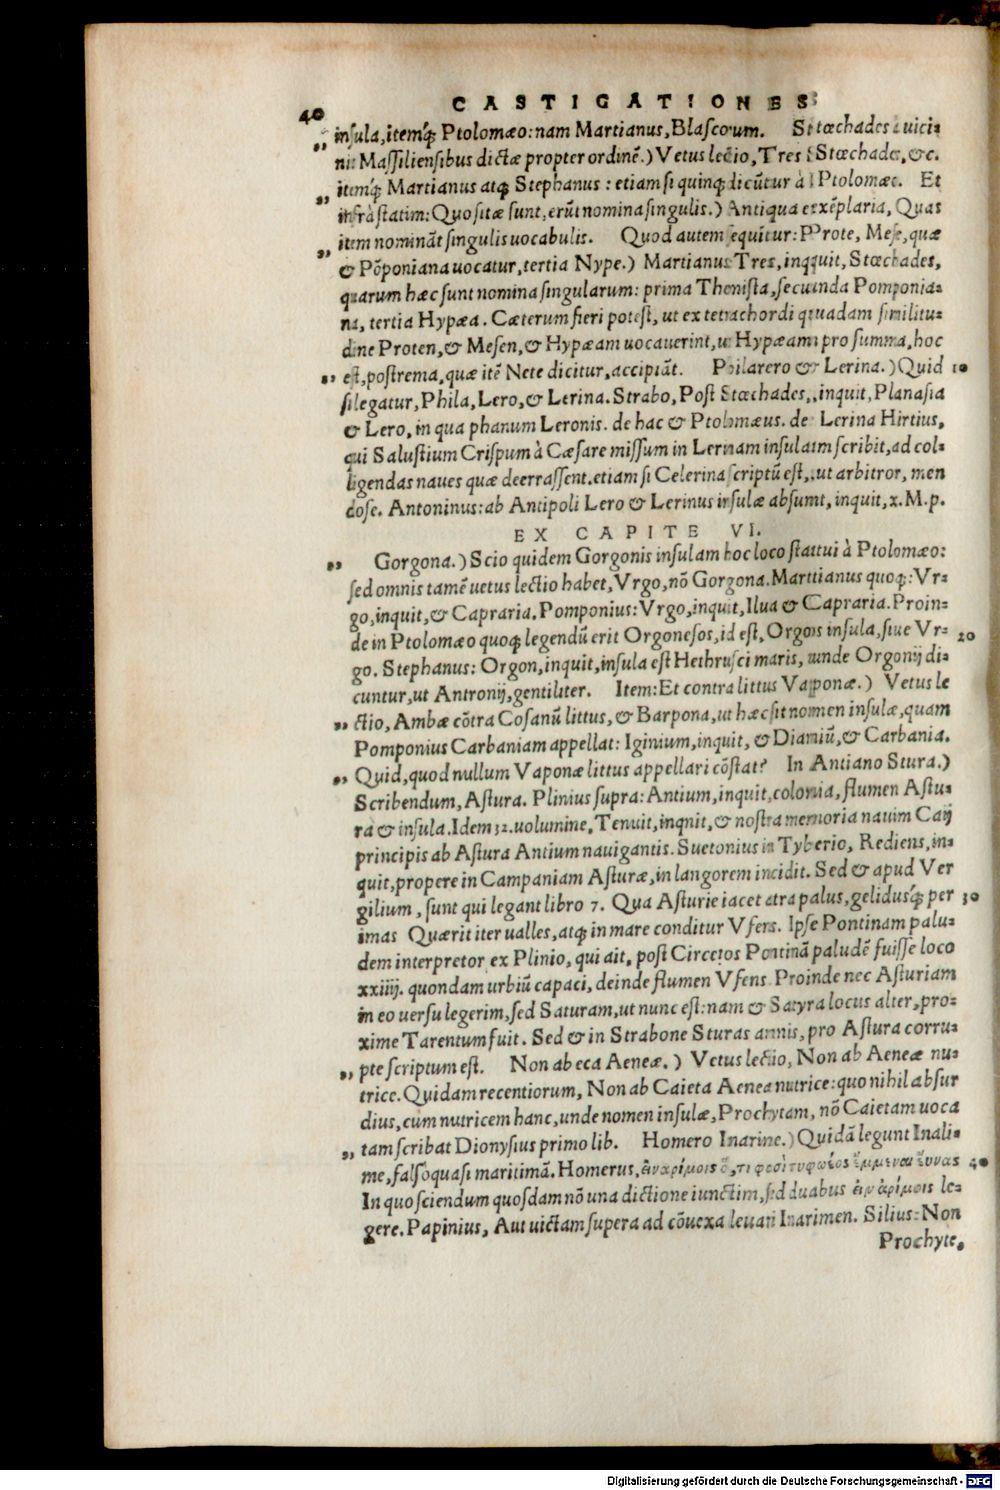 40 CASTIGATIONES
insula, itemq́; Ptolomæo: nam Martianus, Blascorum. Stœchades à uici⸗
„ nis Massiliensibus dictæ propter ordinē.) Vetus lectio, Tres Stœchades, &c.
itemq́; Martianus atq; Stephanus: etiam si quinq; dicūtur à Ptolomæo. Et
„ infrà statim: Quo sitæ sunt, erūt nomina singulis.) Antiqua exēplaria, Quas
item nomināt singulis uocabulis. Quod autem sequitur: Prote, Mese, quæ
„ & Pōponiana uocatur, tertia Nype.) Martianus Tres, inquit, Stœchades,
quarum hæc sunt nomina singularum: prima Thenista, secunda Pomponia⸗
na, tertia Hypæa. Cæterum fieri potest, ut ex tetrachordi quadam similitu⸗
dine Proten, & Mesen, & Hypæam uocauerint, ut Hypæam pro summa, hoc
„ est, postrema, quæ itē Nete dicitur, accipiāt. Philarero & Lerina.) Quid 10
si legatur, Phila, Lero, & Lerina. Strabo, Post Stœchades, inquit, Planasia
& Lero, in qua phanum Leronis. de hac & Ptolomæus. de Lerina Hirtius,
qui Salustium Crispum à Cæsare missum in Lerinam insulam scribit, ad col⸗
ligendas naues quæ deerrassent. etiam si Celerina scriptū est, ut arbitror, men
dose. Antoninus: ab Antipoli Lero & Lerinus insulæ absunt, inquit, x. M. p.
EX CAPITE VI.
„ Gorgona.) Scio quidem Gorgonis insulam hoc loco statui à Ptolomæo:
sed omnis tamē uetus lectio habet, Vrgo, nō Gorgona. Martianus quoq;: Vr⸗
go, inquit, & Capraria. Pomponius: Vrgo, inquit, Ilua & Capraria. Proin⸗
de in Ptolomæo quoq; legendū erit Orgonesos, id est, Orgos insula, siue Vr⸗ 20
go. Stephanus: Orgon, inquit, insula est Hethrusci maris, unde Orgonij di⸗
cuntur, ut Antronij, gentiliter. Item: Et contra littus Vaponæ.) Vetus le
„ ctio, Ambæ cōtra Cosanū littus, & Barpona, ut hæc sit nomen insulæ, quam
Pomponius Carbaniam appellat: Iginium, inquit, & Dianiū, & Carbania.
„ Quid, quod nullum Vaponæ littus appellari cōstat? In Antiano Stura.)
Scribendum, Astura. Plinius supra: Antium, inquit, colonia, flumen Astu⸗
ra & insula. Idem 32. uolumine, Tenuit, inqnit, & nostra memoria nauim Caij
principis ab Astura Antium nauigantis. Suetonius in Tyberio, Rediens, in⸗
quit, propere in Campaniam Asturæ, in langorem incidit. Sed & apud Ver
gilium, sunt qui legant libro 7. Qua Asturie iacet atra palus, gelidusq́; per 30
imas Quærit iter ualles, atq; in mare conditur Vfens. Ipse Pontinam palu⸗
dem interpretor ex Plinio, qui ait, post Circeios Pontinā paludē fuisse loco
xxiiij. quondam urbiū capaci, deinde flumen Vfens. Proinde nec Asturiam
in eo uersu legerim, sed Saturam, ut nunc est: nam & Satyra locus alter, pro⸗
xime Tarentum fuit. Sed & in Strabone Sturas amnis, pro Astura corru⸗
„ pte scriptum est. Non ab eca Aeneæ.) Vetus lectio, Non ab Aeneæ nu⸗
trice. Quidam recentiorum, Non ab Caieta Aenea nutrice: quo nihil absur
dius, cum nutricem hanc, unde nomen insulæ, Prochytam, nō Caietam uoca
„ tam scribat Dionysius primo lib. Homero Inarine.) Quidā legunt Inali⸗
me, falsò quasi maritimā. Homerus, 40
In quo sciendum quosdam nō una dictione iunctim, sed duabus le⸗
gere. Papinius, Aut uictam supera ad cōuexa leuari Inarimen. Silius: Non
Prochyte,
Digitalisierung gefördert durch die Deutsche Forschungsgemeinschaft - DFG